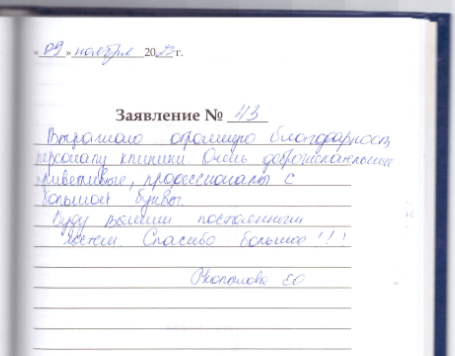 « 09 » ноября 2022 г.
Заявление № 43
Выражаю огромную благодарность
персоналу клиники. Очень доброжелательные
приветливые, профессионалы с
большой буквы.
Буду вашим постоянным
гостем. Спасибо большое!!!
ЕО